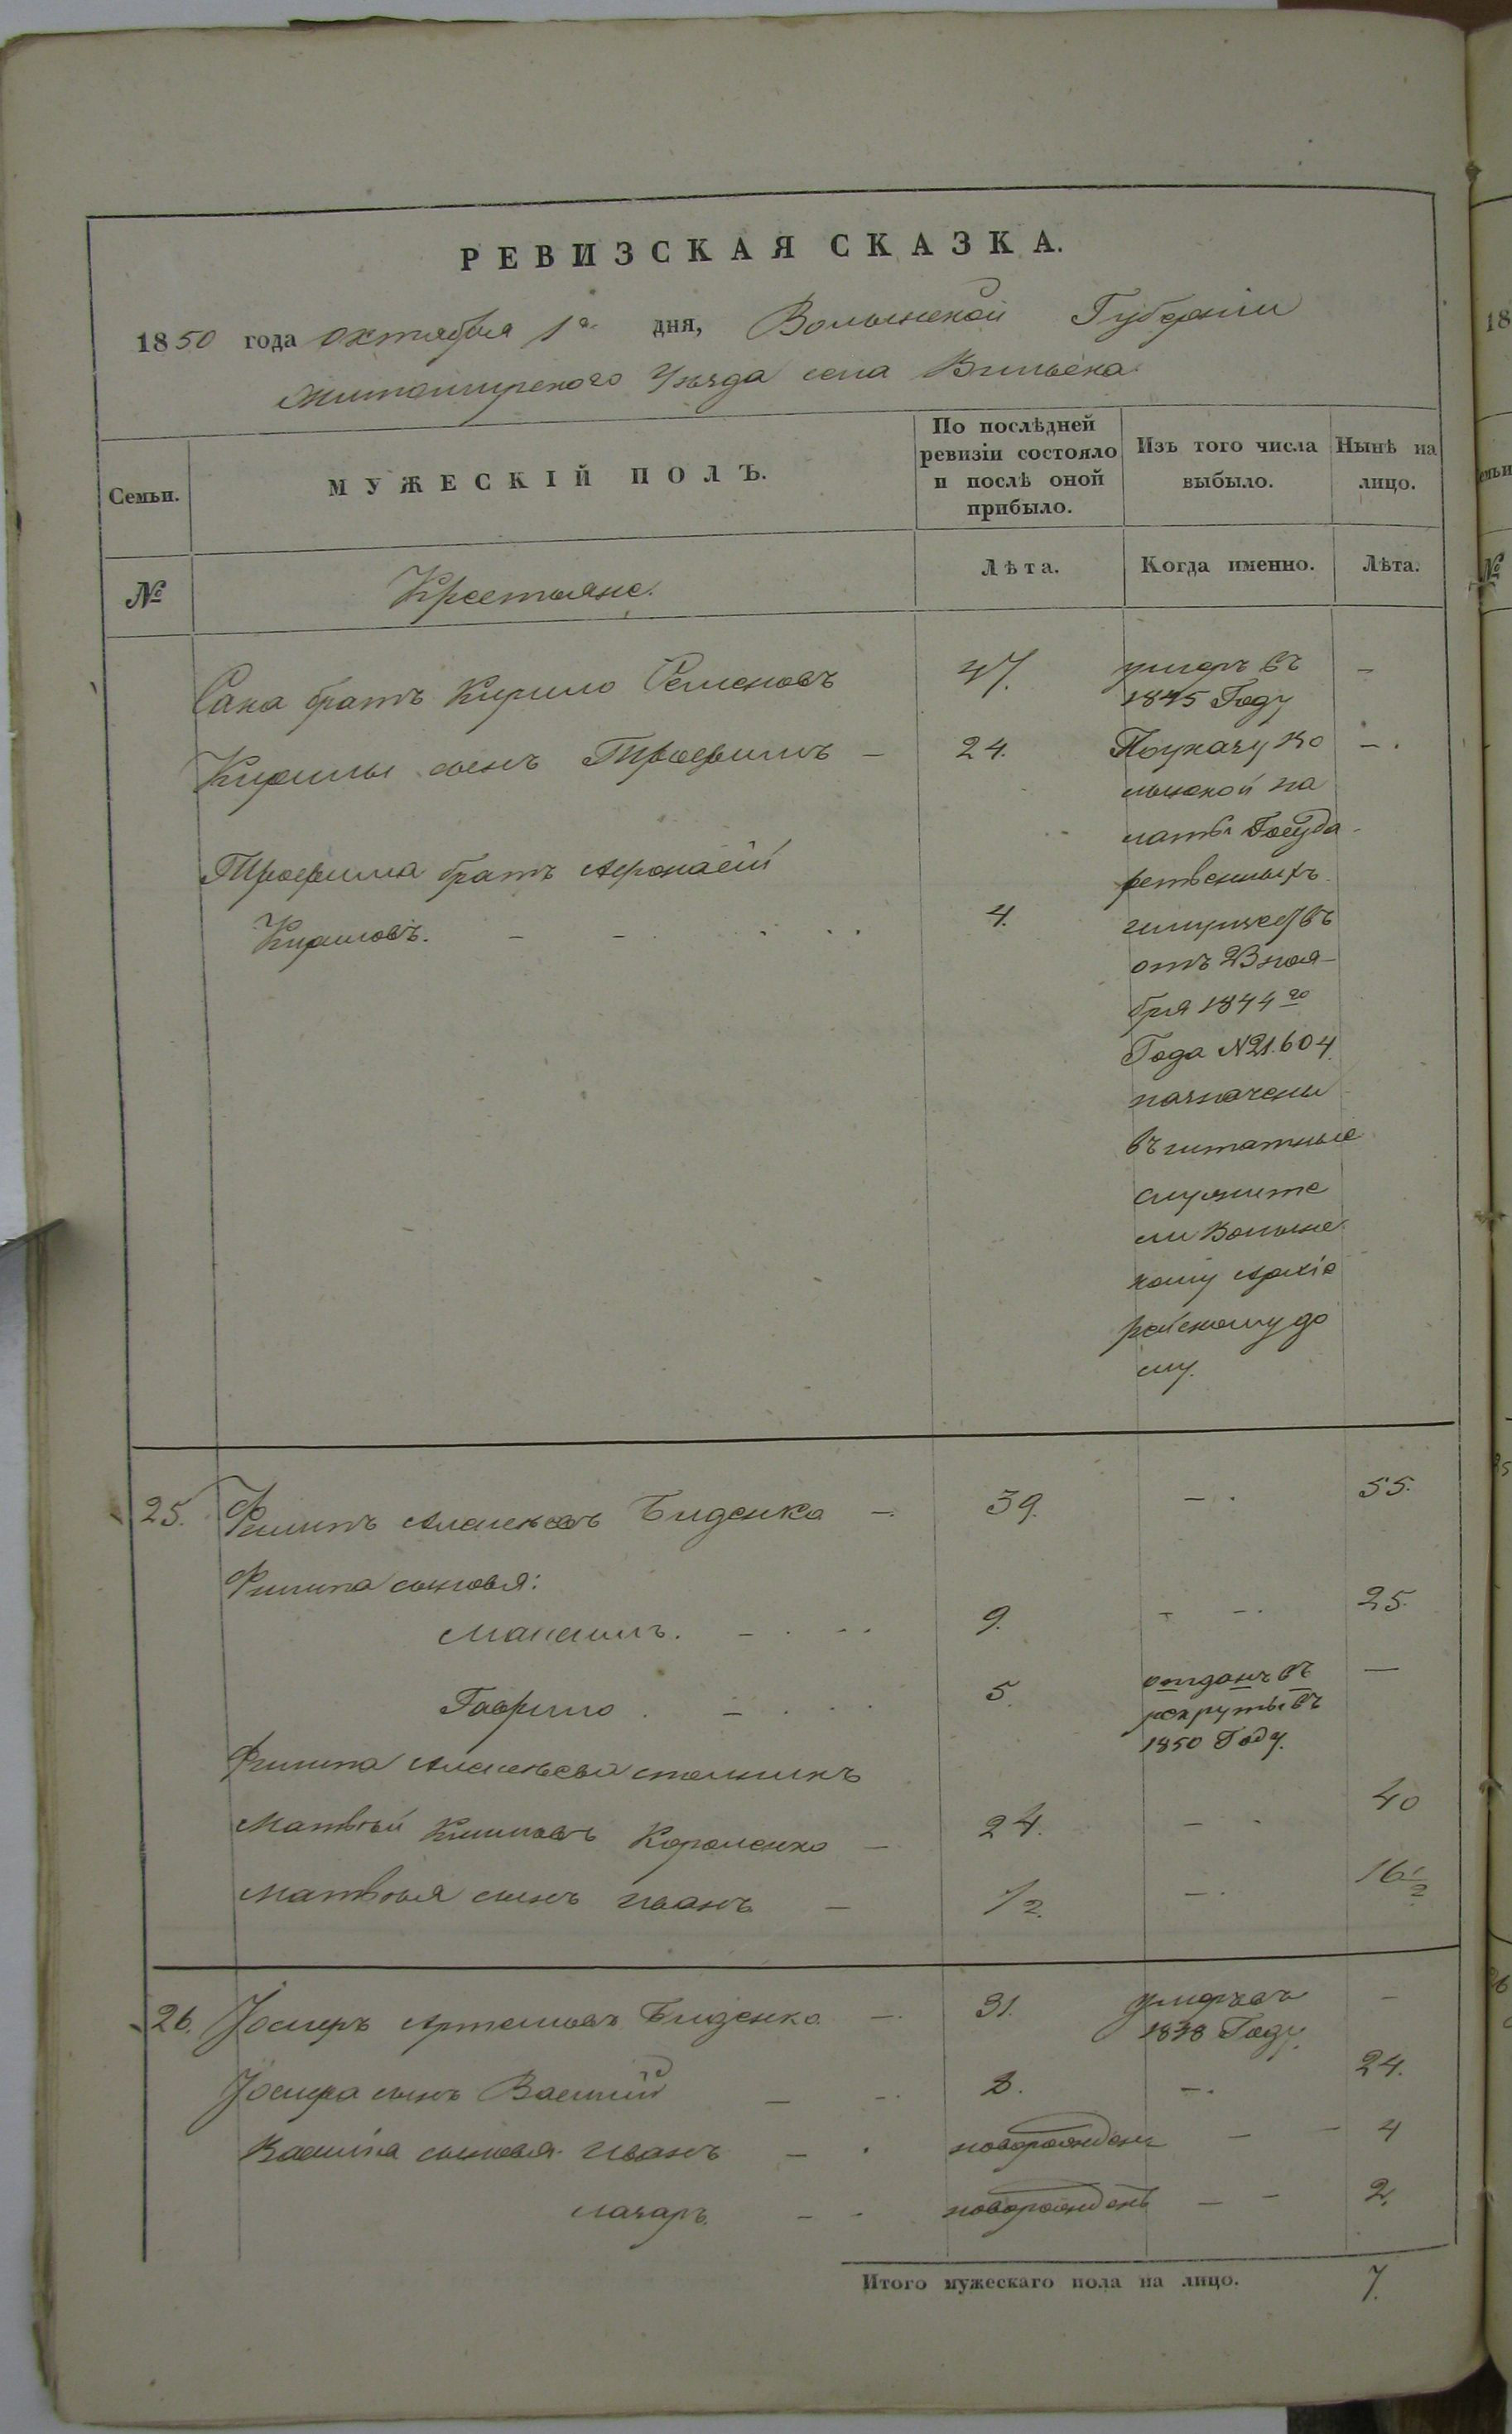 РЕВИЗСКАЯ СКАЗКА.
1850 года октября 1го дня, Волынской Губерніи
Житомирского Уѣзда села Вильска
Семьи.
МУЖЕСКІЙ ПОЛЪ.
По послѣдней
ревизіи состояло
и послѣ оной
прибыло.
Изъ того числа
выбыло.
Нынѣ на
лицо.
№
Крестьяне.
Лѣта.
Когда именно.
Лѣта.
Сака братъ Кирило Семеновъ 47. умеръ въ —
1845 Году
Кирилы сынъ Трофимъ — 24. По указу Во —.
лынской па
латы Госуда
Трофима братъ Афонасій
рственныхъ
Кириловъ. — — 4. имуществъ
отъ 23 ноя-
бря 1844го
Года №21.604
назначены
въ штатные
служите
ли Волынс
кому Архіе
рейскому до
му.
25. Филипъ Алексѣевъ Биденко —. 39. —. 55.
Филипа сыновья:
Максимъ. — 9. — —. 25.
Гаврило . — 5. отданъ въ —
рекруты въ
1850 Году.
Филипа Алексѣева
Матвѣй Климовъ Короленко — 24. — 40
Матвѣя сынъ Иванъ — 1/2. —. 16 1/2
26. Іосифъ Артемовъ Биденко —. 31. умеръ въ —
1838 Году.
Іосифа сынъ Василій — —. 8. —. 24.
Василія сыновья Иванъ — . новорожденъ — — 4
Лазаръ. — новорожденъ — — 2.
Итого мужескаго пола на лицо. 7.
18
№